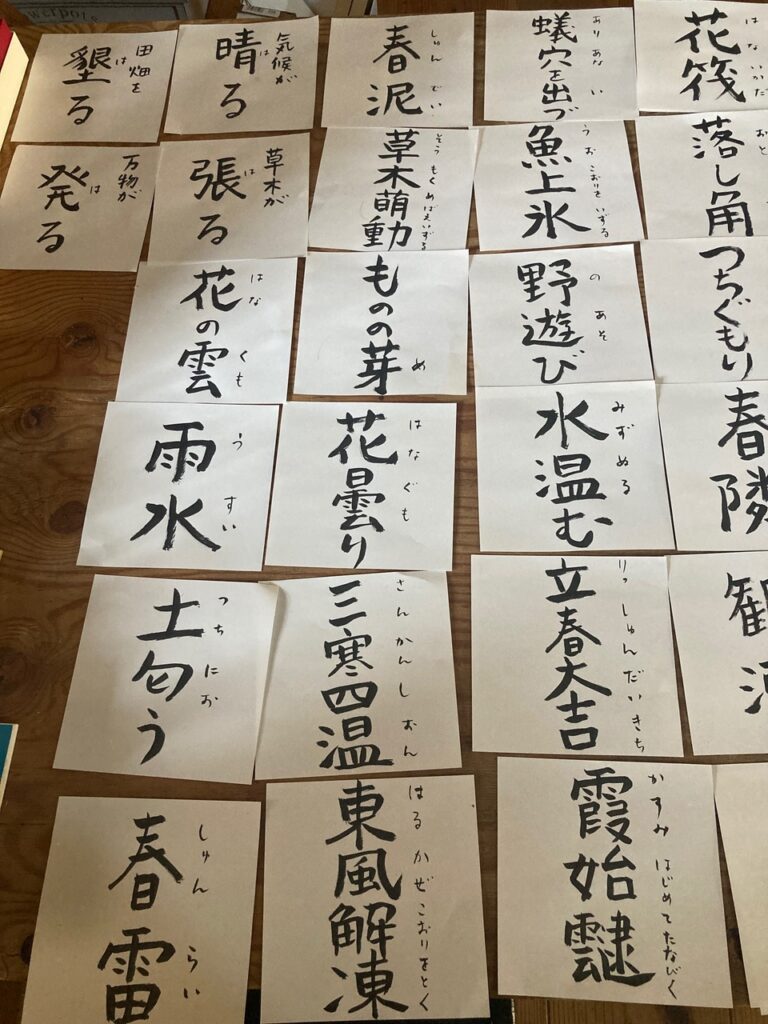 田畑を
墾る
は
気候が
晴る
は
春泥
しゅんでい
蟻穴を出づ
ありあない
花筏
はないかだ
万物が
発る
は
草木が
張る
は
草木萌動
そうもくめばえいずる
魚上氷
うおこおりをいずる
落し角
おと
花の雲
はなくも
ものの芽
め
野遊び
のあそ
つちぐもり
雨水
うすい
花曇り
はなぐも
水温む
みずぬる
春隣
土匂う
つちにお
三寒四温
さんかんしおん
立春大吉
りっしゅんだいきち
観
春雷
しゅんらい
東風解凍
はるかぜこおりをとく
霞始靆
かすみはじめてたなびく